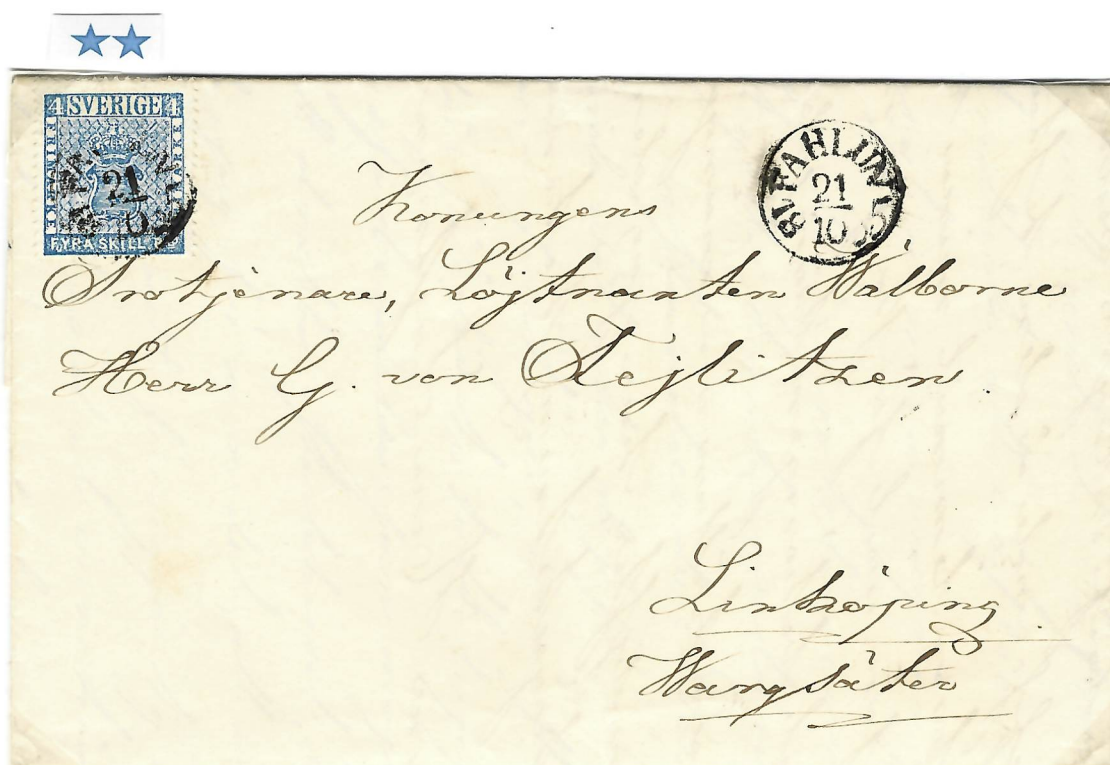 4 SVERIGE 4
21
FYRA SKILL Bco
FAHLUN
21
10
Konungens
Trotjenare, Löjtnanten Wälborne
Herr G. von Tejlitzen
Linköping
Wargsäter